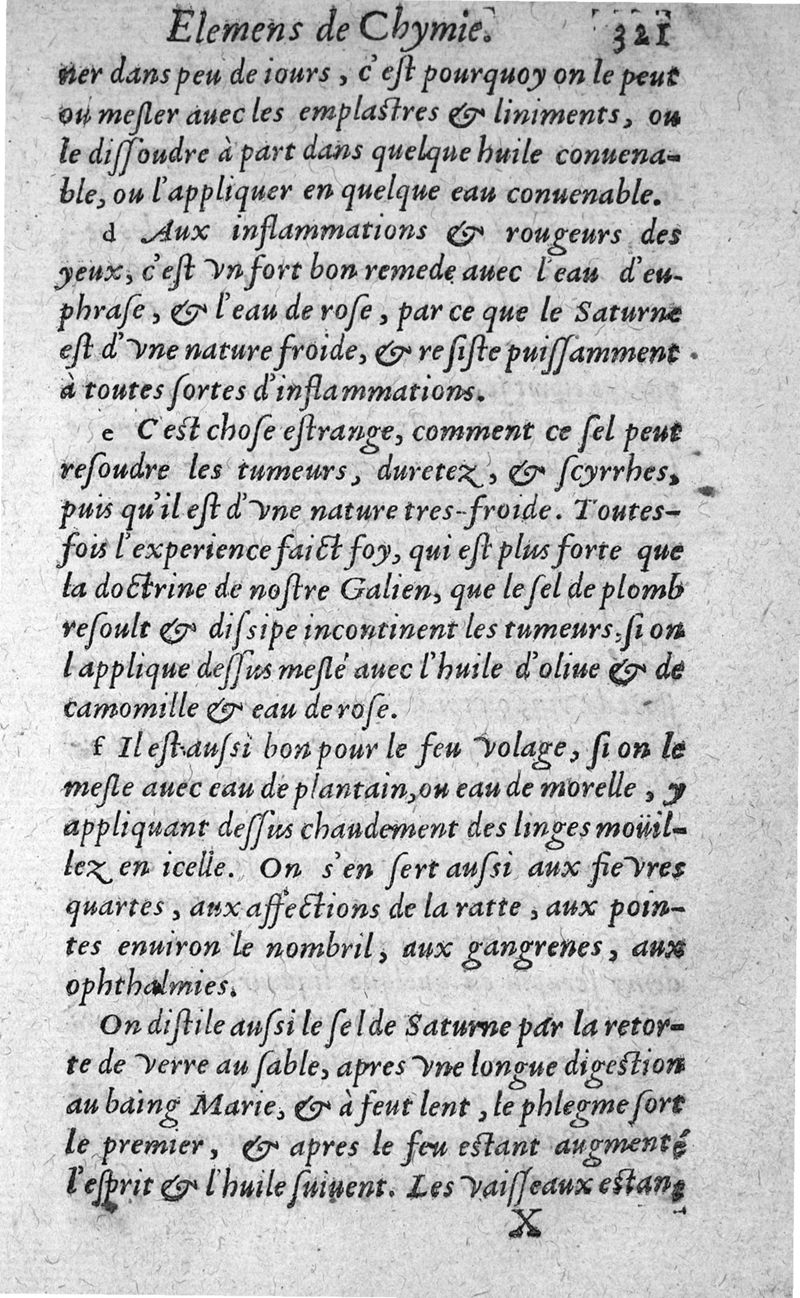 Elemens de Chymie. 321
ner dans peu de iours, c'eſt pourquoy on le peut
ou meſler auec les emplaſtres & liniments, ou
le diſſoudre à part dans quelque huile conuena-
ble, ou l'appliquer en quelque eau conuenable.
d Aux inflammations & rougeurs des
yeux, c'eſt vn fort bon remede auec l'eau d'eu-
phraſe, & l'eau de roſe, par ce que le Saturne
eſt d'vne nature froide, & reſiſte puiſſamment
à toutes ſortes d'inflammations.
e C'est choſe eſtrange, comment ce ſel peut
reſoudre les tumeurs, duretez, & ſcyrrhes,
puis qu'il eſt d'vne nature tres-froide. Toutes-
fois l'experience faict foy, qui eſt plus forte que
la doctrine de noſtre Galien, que le ſel de plomb
reſoult & diſsipe incontinent les tumeurs, ſi on
l'applique deſſus meſlé auec l'huile d'oliue & de
camomille & eau de roſe.
f Il eſt auſsi bon pour le feu volage, ſi on le
meſle auec eau de plantain, ou eau de morelle, y
appliquant deſſus chaudement des linges moüil-
lez en icelle. On s'en ſert auſsi aux fievres
quartes, aux affections de la ratte, aux poin-
tes enuiron le nombril, aux gangrenes, aux
ophthalmies.
On diſtile auſsi le ſel de Saturne par la retor-
te de verre au ſable, apres vne longue digeſtion
au baing Marie, & à feut lent, le phlegme ſort
le premier, & apres le feu eſtant augmenté
l'eſprit & l'huile ſuiuent. Les vaiſſeaux eſtans
X